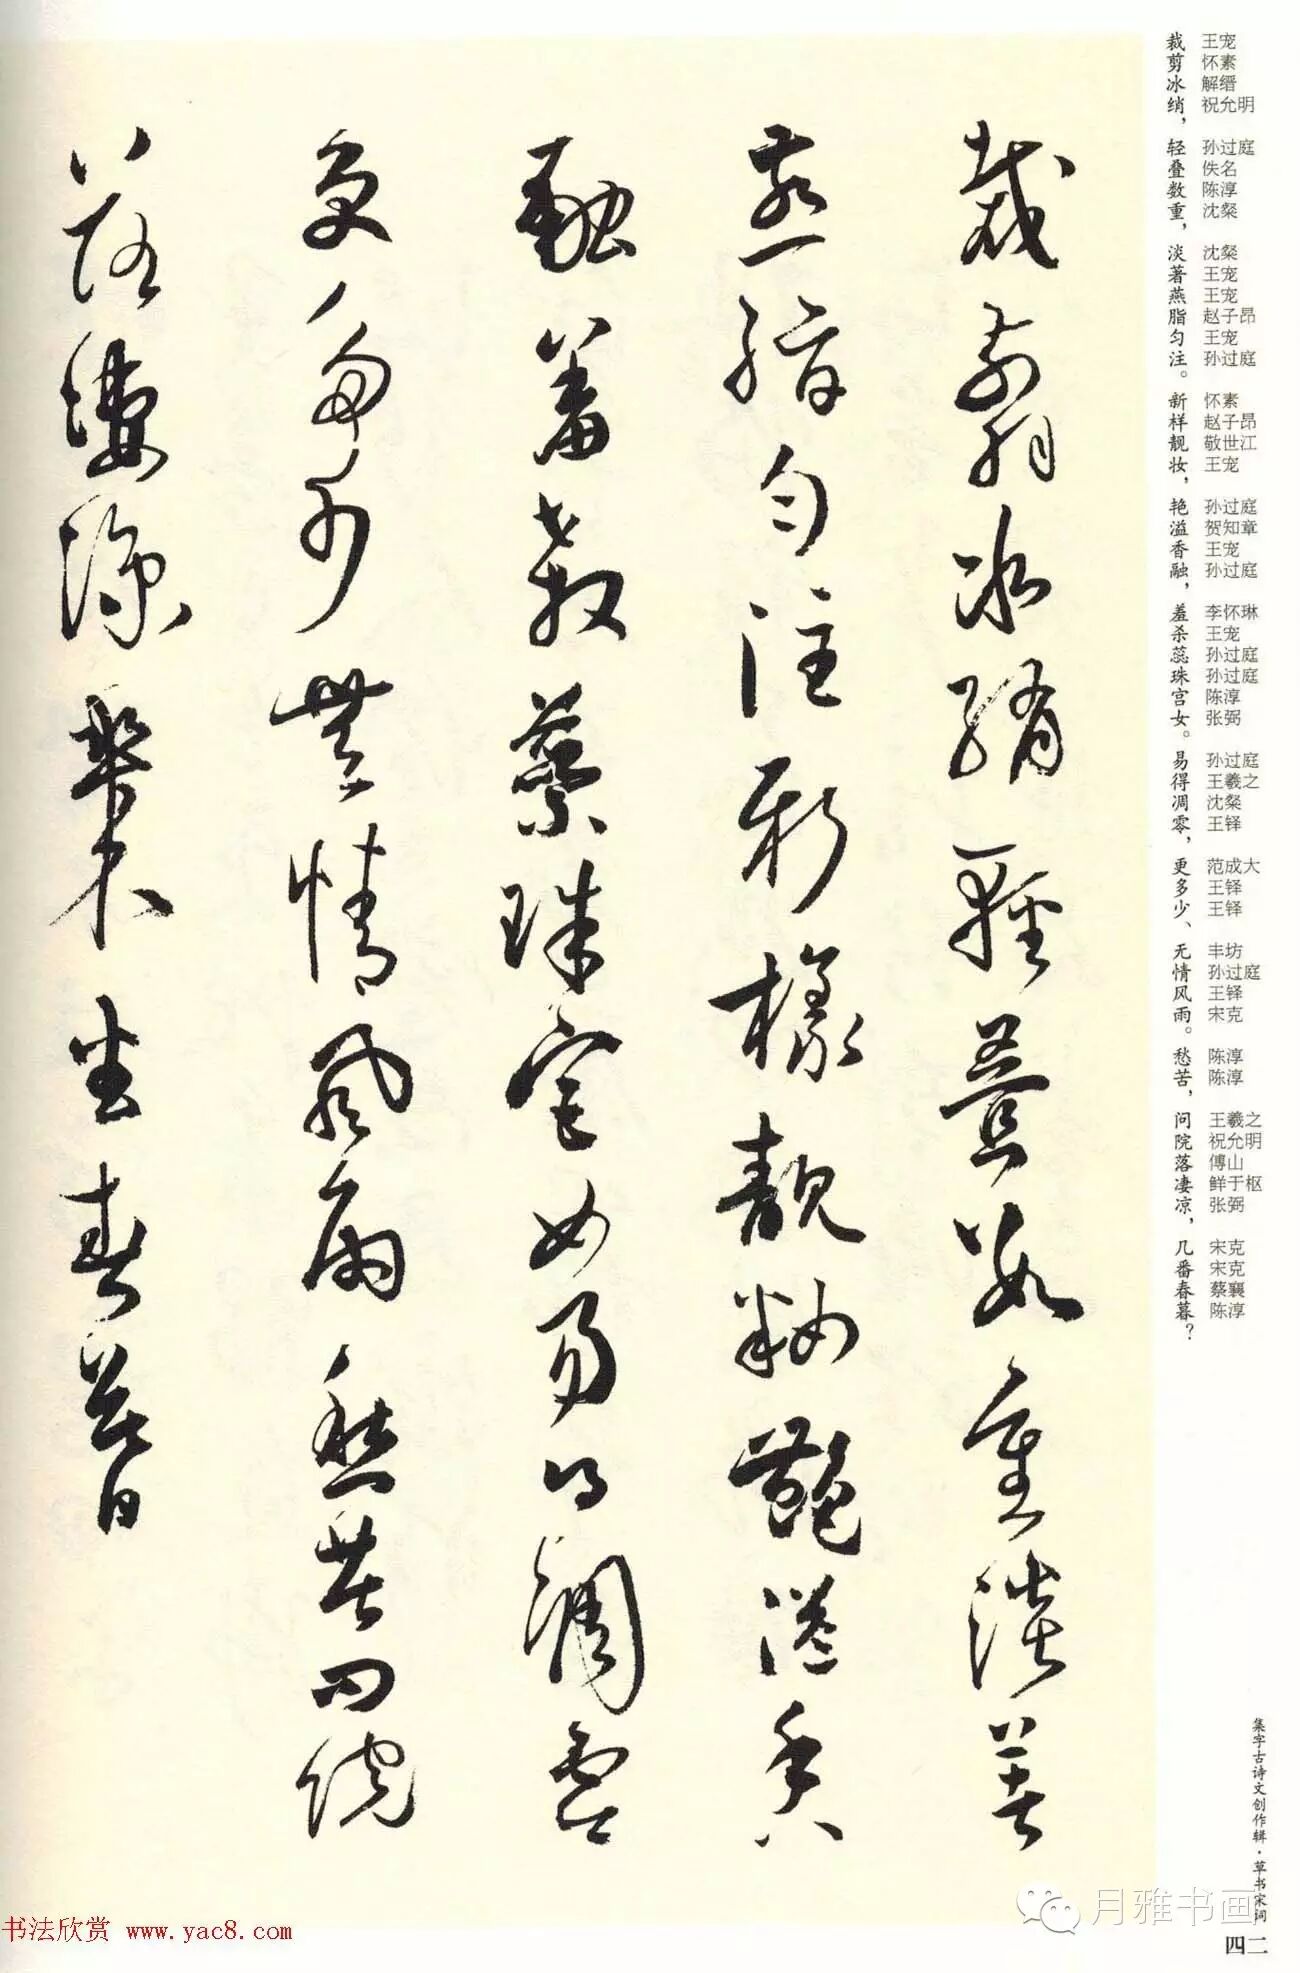 裁剪冰绡，轻叠数重，淡著燕脂匀注。新样靓妆，艳溢香融，羞杀蕊珠宫女。易得凋零，更多少、无情风雨。愁苦，问院落凄凉，几番春暮？
王宠
怀素
解缙
祝允明
孙过庭
佚名
陈淳
沈粲
沈粲
王宠
王宠
赵子昂
王宠
孙过庭
怀素
赵子昂
敬世江
王宠
孙过庭
贺知章
王宠
孙过庭
李怀琳
王宠
孙过庭
孙过庭
陈淳
张弼
孙过庭
王羲之
沈粲
王铎
范成大
王铎
王铎
丰坊
孙过庭
王铎
宋克
陈淳
陈淳
王羲之
祝允明
傅山
鲜于枢
张弼
宋克
宋克
蔡襄
陈淳
裁剪冰綃輕疊數重淡著
燕脂勻注新樣靚粧豔溢香
融羞殺蘂珠宮女易得凋零
更多少無情風雨愁苦問院
落淒涼幾番春暮
集字古诗文创作辑·草书宋词
四二
月雅书画
书法欣赏 www.yac8.com